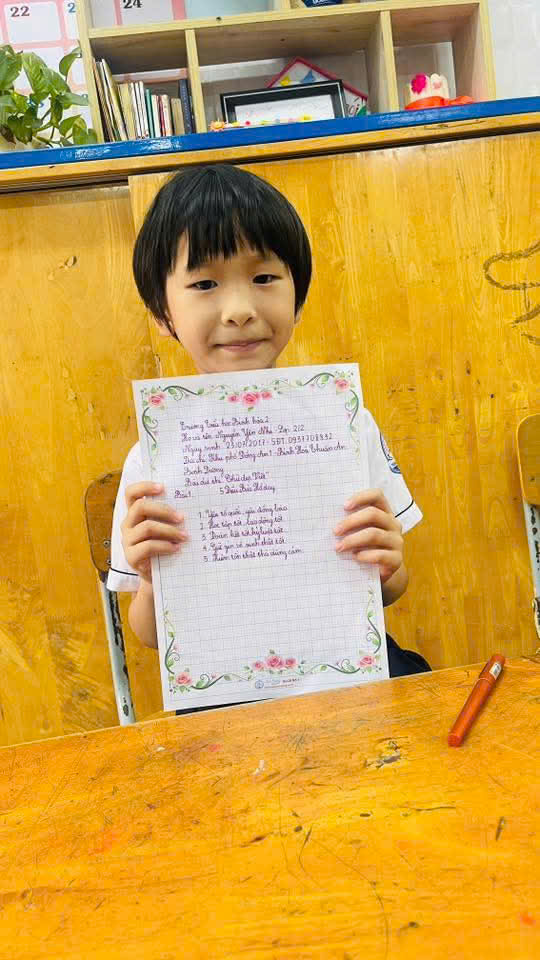 22
24
Trường Tiểu học Bình hòa 2
Họ và tên: Nguyễn Yến Nhi - Lớp: 2/2
Ngày sinh: 23/07/2017 - SĐT: 0937708932
Địa chỉ: Khu phố Đông An 1 - Bình Hoà Thuận An
Bình Dương
Bài dự thi "Chữ đẹp Việt"
Bài 1: 5 Điều Bác Hồ dạy
1. Yêu tổ quốc, yêu đồng bào.
2. Học tập tốt, lao động tốt.
3. Đoàn kết tốt, kỷ luật tốt.
4. Giữ gìn vệ sinh thật tốt.
5. Khiêm tốn thật thà dũng cảm.